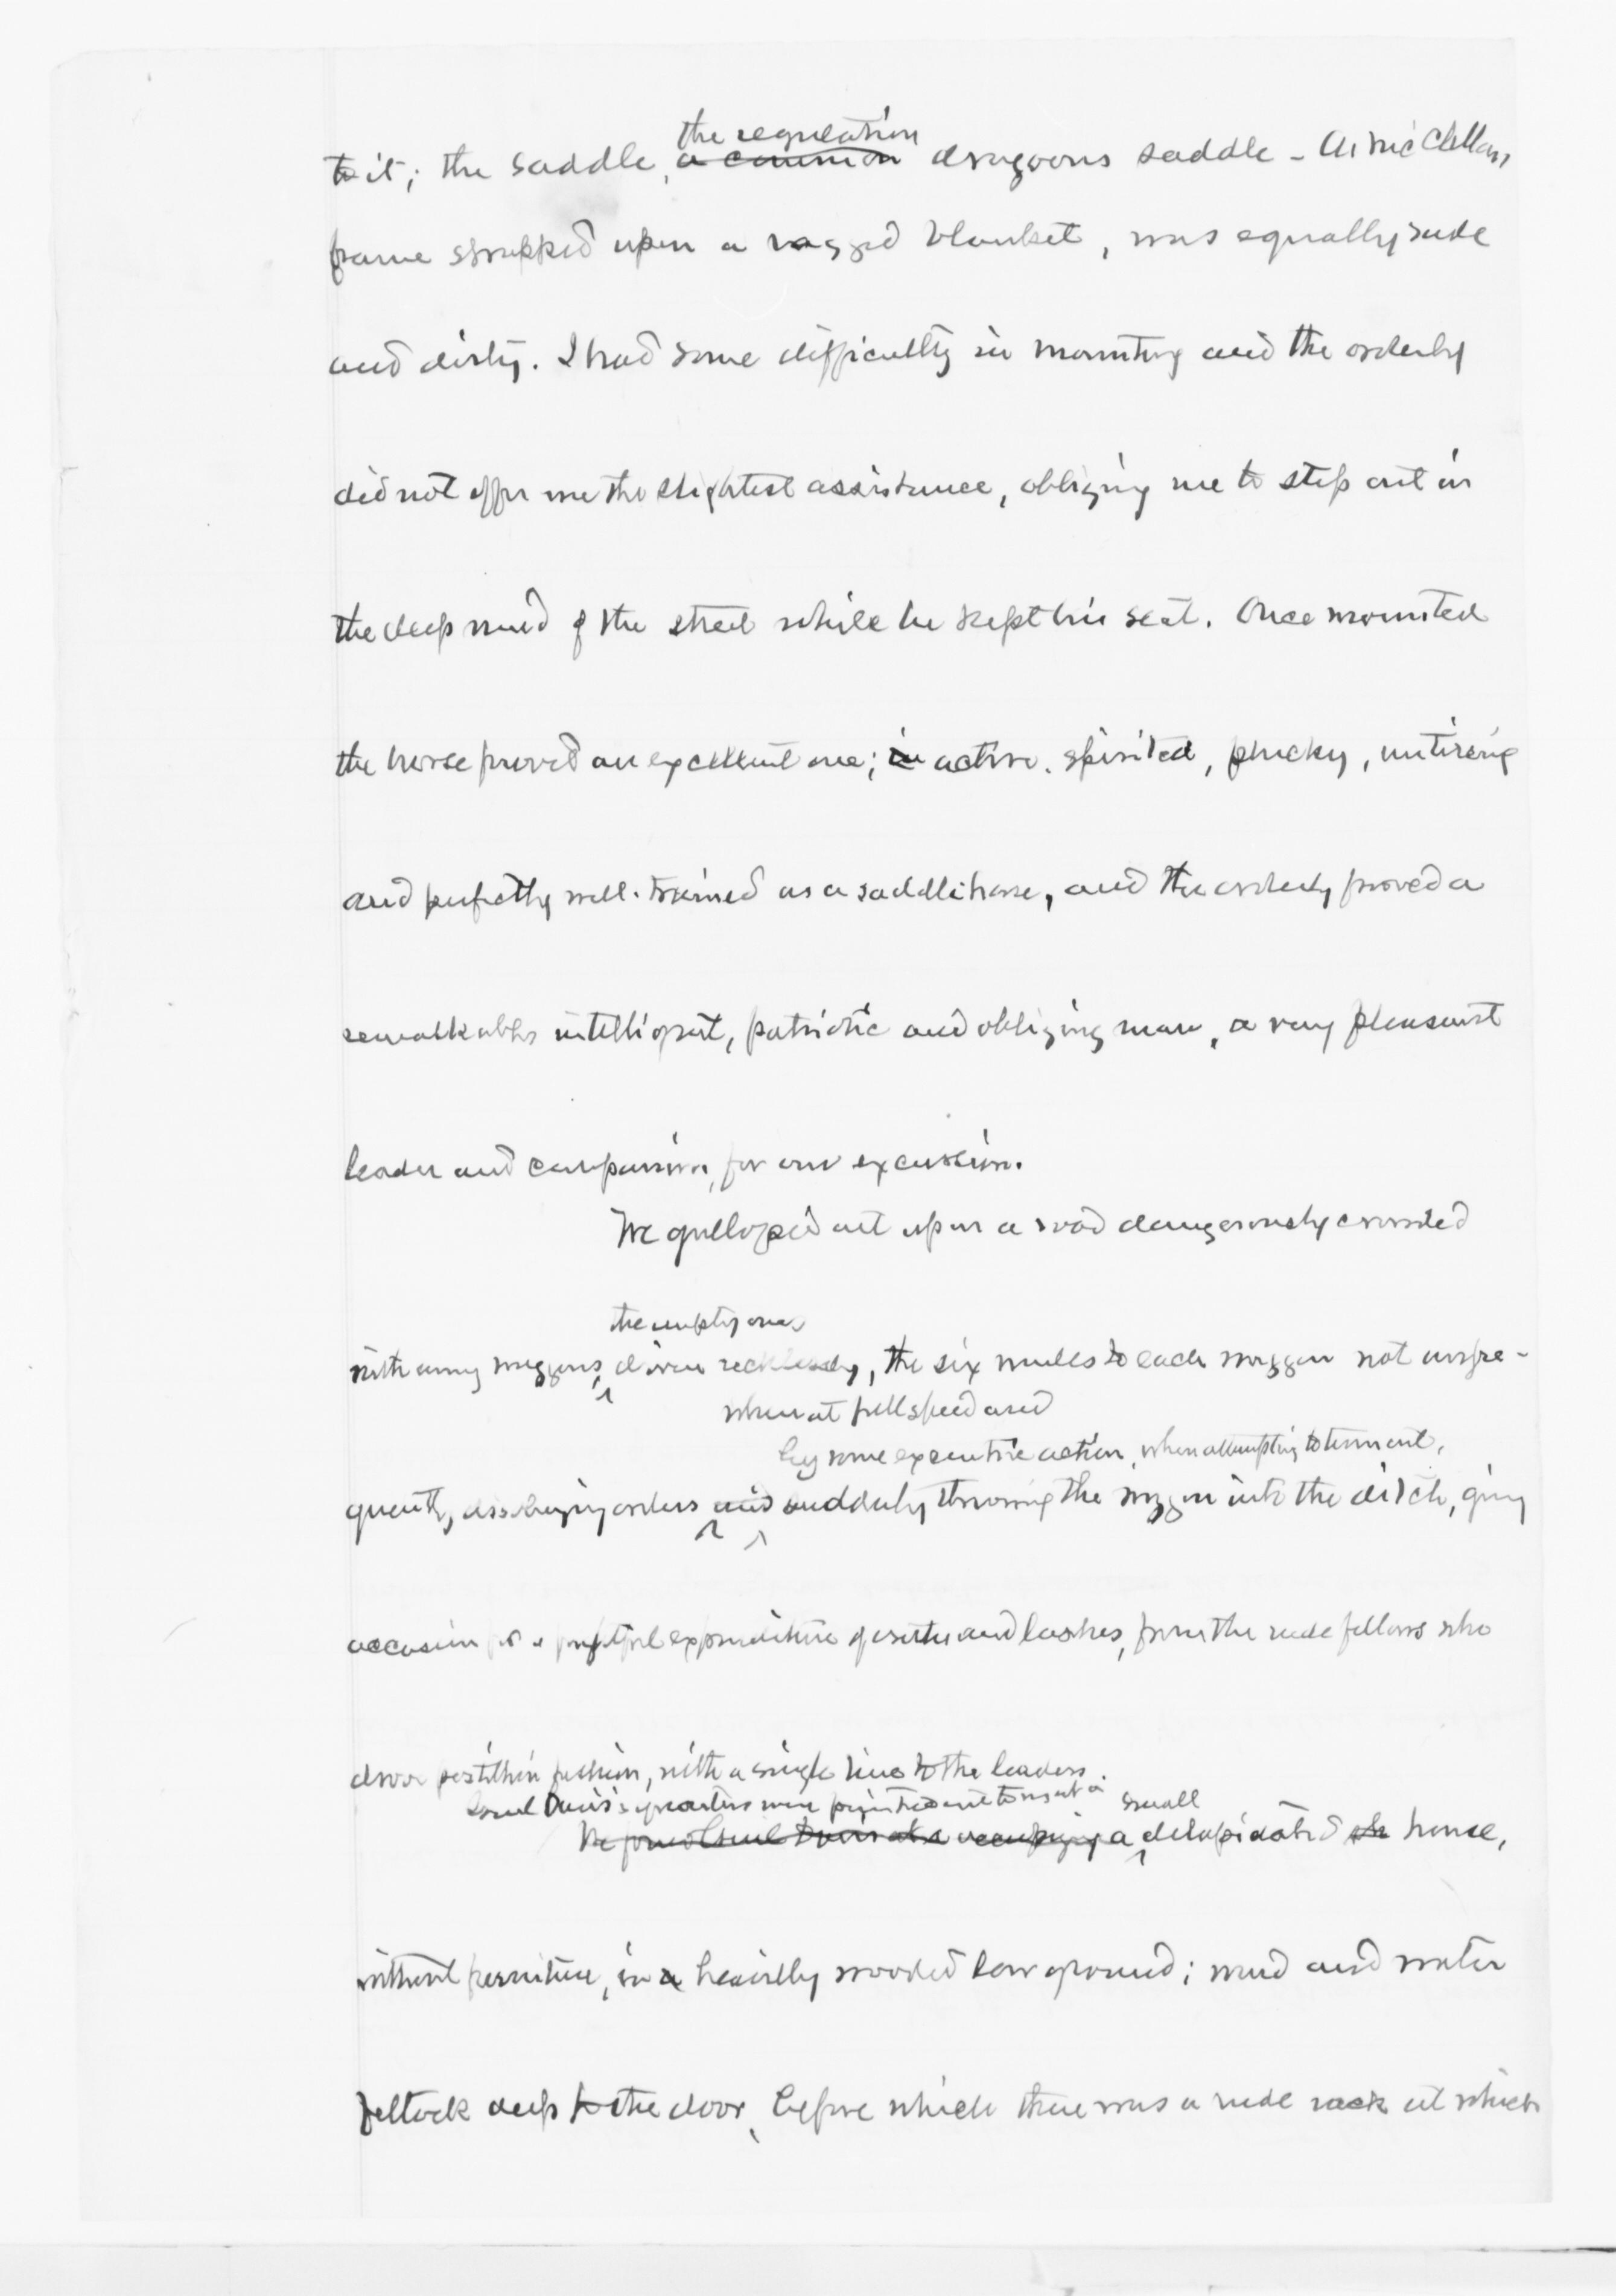 the regulation
to it; the saddle, a common dragoons saddle - A McClellan
frame strapped upon a ragged blanket, was equally rude
and dirty. I had some difficulty in mounting and the orderly
did not offer me the slightest assistance, obliging me to step out in
the deep mud of the street while he kept his seat. Once mounted
the horse proved an excellent one; in active, spirited, plucky, untiring
and perfectly well-trained as a saddle horse, and the orderly proved a
remarkably intelligent, patriotic and obliging man, a very pleasant
leader and companion, for our excursion.
We gallopped out upon a road dangerously crowded
the empty ones
with army waggons, driven recklessly, the six mules to each waggon not unfre-
when at full speed and
by some excentric action, when attempting to turn out,
quently, disobeying orders and suddenly throwing the waggon into the ditch, giving
occasion for a frightful expenditure of oaths and lashes, from the rude fellows who
drove postillion fashion, with a single line to the leaders.
Genl Davis's quarters were pointed out to us at a small
We found Genl Davis occupying a dilapidated house,
without furniture, in a heavily wooded low ground; mud and water
fetlock deep to the door, before which there was a rude rack at which